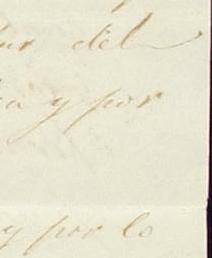 del
y por
y por lo